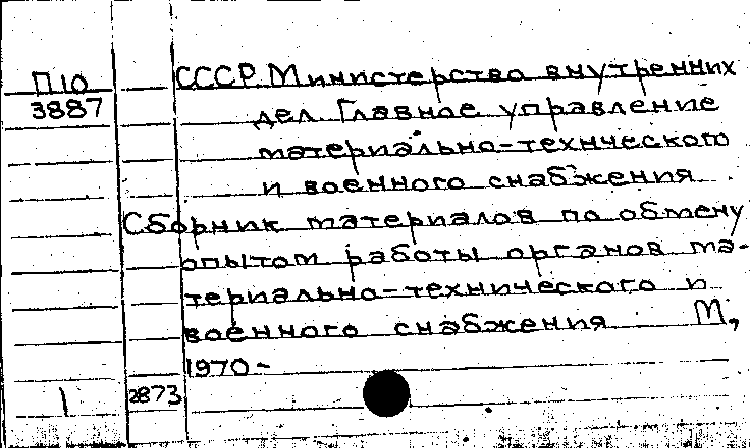 П10 СССР. Министерство внутренних
3887 дел. Главное управление
материально-технического
и военного снабжения
Сборник материалов по обмену
опытом работы органов ма-
териально-технического и
военного снабжения М.,
1970-
1 2873